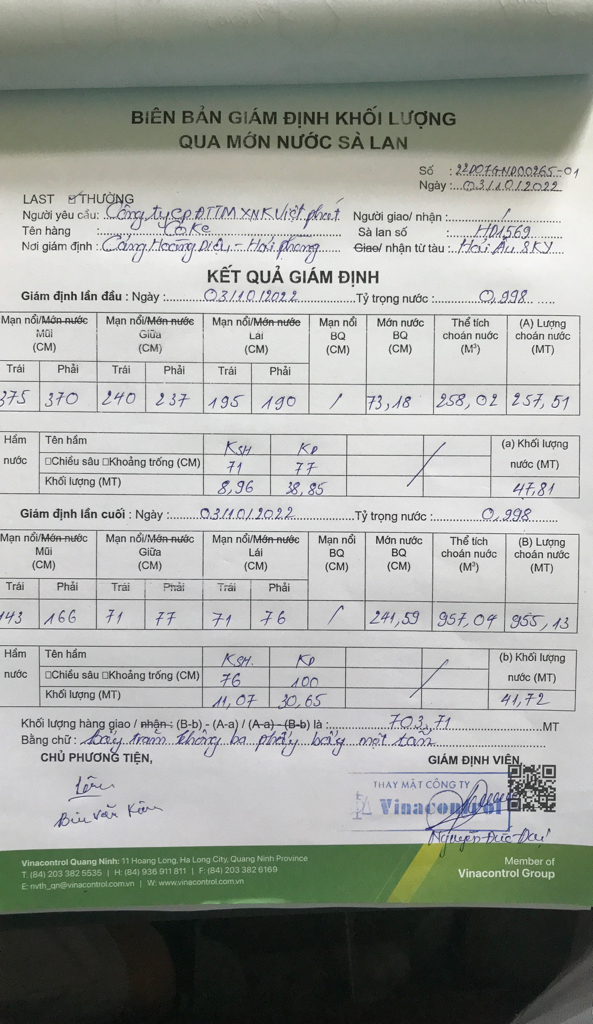 BIÊN BẢN GIÁM ĐỊNH KHỐI LƯỢNG
QUA MỚN NƯỚC SÀ LAN
Số : 22D07GND00265-01
Ngày : 03/10/2022
LAST THƯỜNG
Người yêu cầu: Công ty CP ĐTTM XNK Việt phát Người giao/ nhận : /
Tên hàng : Cô Ke Sà lan số : HD1569
Nơi giám định : Cảng Hoàng Diệu - Hải phòng Giao/ nhận từ tàu : Hải Âu SKY
KẾT QUẢ GIÁM ĐỊNH
Giám định lần đầu : Ngày : 03/10/2022 Tỷ trọng nước : 0,998
Mạn nổi/Mớn nước Mũi (CM) Mạn nổi/Mớn nước Giữa (CM) Mạn nổi/Mớn nước Lái (CM) Mạn nổi BQ (CM) Mớn nước BQ (CM) Thể tích choán nước (M³) (A) Lượng choán nước (MT)
Trái Phải Trái Phải Trái Phải
375 370 240 237 195 190 / 73,18 258,02 257,51
Hầm nước Tên hầm KSH KP (a) Khối lượng nước (MT)
□Chiều sâu □Khoảng trống (CM) 71 77
Khối lượng (MT) 8,96 38,85 47,81
Giám định lần cuối : Ngày : 03/10/2022 Tỷ trọng nước : 0,998
Mạn nổi/Mớn nước Mũi (CM) Mạn nổi/Mớn nước Giữa (CM) Mạn nổi/Mớn nước Lái (CM) Mạn nổi BQ (CM) Mớn nước BQ (CM) Thể tích choán nước (M³) (B) Lượng choán nước (MT)
Trái Phải Trái Phải Trái Phải
143 166 71 77 71 76 / 241,59 957,04 955,13
Hầm nước Tên hầm KSH. KP (b) Khối lượng nước (MT)
□Chiều sâu □Khoảng trống (CM) 76 100
Khối lượng (MT) 11,07 30,65 41,72
Khối lượng hàng giao / nhận : (B-b) - (A-a) / (A-a) - (B-b) là : 703,71 MT
Bằng chữ : bảy trăm không ba phẩy bảy một tấn
CHỦ PHƯƠNG TIỆN, GIÁM ĐỊNH VIÊN,
THAY MẶT CÔNG TY
Vinacontrol
Bùi Văn Kiên
Nguyễn Đức Đại
Vinacontrol Quang Ninh: 11 Hoang Long, Ha Long City, Quang Ninh Province
T: (84) 203 382 5535 | H: (84) 936 911 811 | F: (84) 203 382 6169
E: nvth_qn@vinacontrol.com.vn | W: www.vinacontrol.com.vn
Member of
Vinacontrol Group